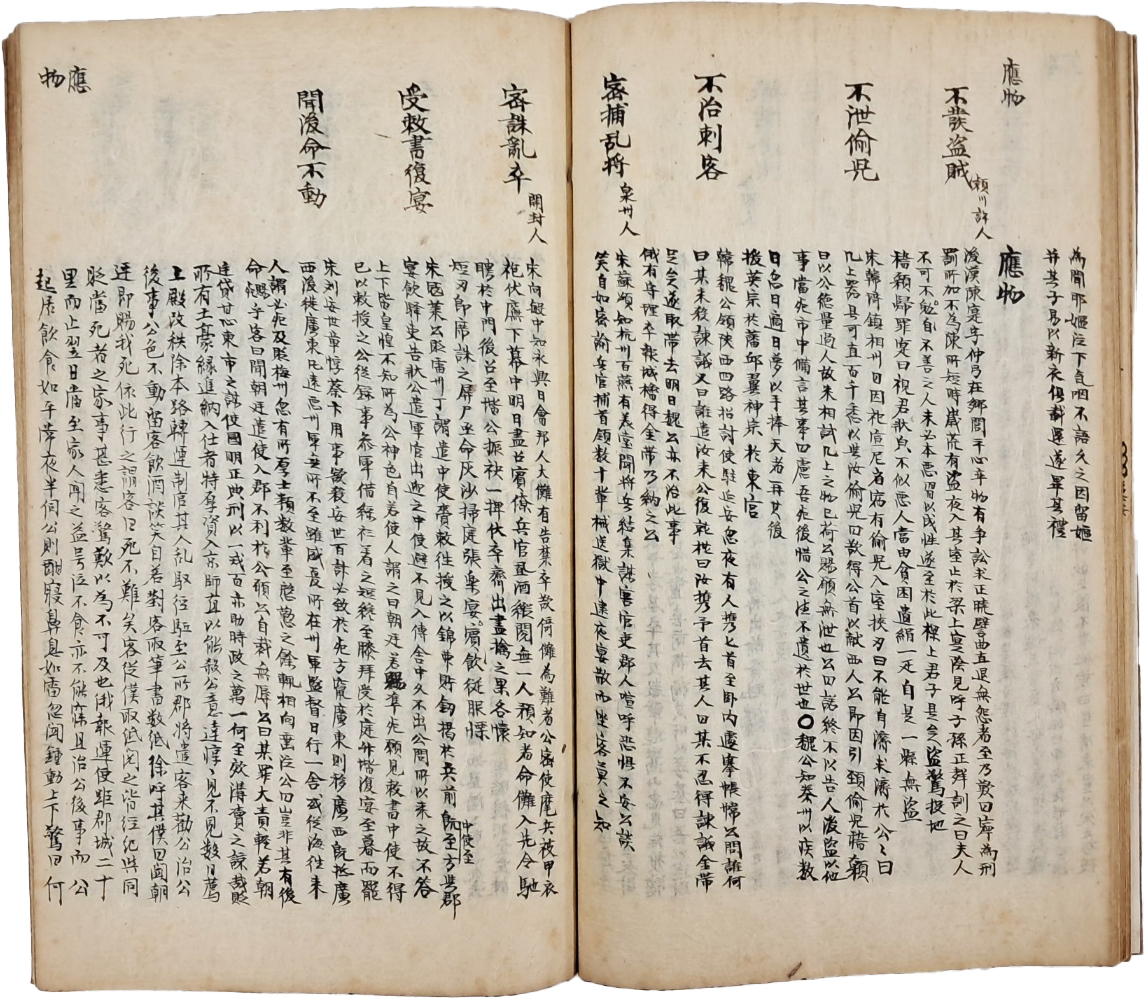 應物
為聞耶嫗泣下氣咽不語久之因留嫗
并其子易以新衣俱載還遂畢其禮
應物
不發盜賊 潁川許人
後漢陳寔字仲弓在鄉閭平心率物有事訟求正曉譬曲直退無怨者至乃歎曰寧為刑
罰所加不為陳所短時歲荒有盜夜入其室止於梁上寔陰見呼子孫正辞訓之曰夫人
不可不勉自不善之人未必本悪習以成性遂至於此樑上君子是矣盜驚投地
稽顙歸罪寔曰視君狀皃不似悪人當由貧困遺絹一疋自是一縣無盜
不泄偷児
宋韓琦鎮相州日因祀宣尼齋宿有偷児入室挾刃曰不能自濟求濟於公公曰
几上器具可直百千悉以與汝偷児曰欲得公首以献西人公即因引頸偷児稽顙
曰以公德量過人故来相試几上之物已荷公賜願無泄也公曰諾終不以告人後盜以他
事當死市中中備言其事曰慮吾死後惜公之德不遺於世也〇魏公知泰州以疾数
日忽曰適日夢以手捧天者再其後
援英宗於藩邸翼神宗於東宮
不治刺客
韓魏公領陜西四路招討使駐延安忽夜有人携匕首至卧内遽搴帳帷公問誰何
曰某来殺諫議又曰誰遣汝来公復就枕曰汝携予首去其人曰某不忍得諫議金帶
足矣遂取帶去明日魏公亦不治此事
俄有守陴卒報城櫓得金帶乃納之公
密捕乱将 泉州人
宋蘇頌知杭州百燕有美堂聞将兵結集謀害官吏郡人喧呼恐惧不安公談
笑自如密諭兵官捕首領数十輩械送獄中逮夜宴散而坐客莫之知
應物
密誅亂卒 開封人
宋向敏中知永興日會邦人大儺有告禁卒欲倚儺為難者公密使麾兵被甲衣
袍伏廡下幕中明日盡召賓僚兵官置酒縱閱無一人預知者命儺入先令馳
騁於中門後召至堦公振袂一揮伏卒齊出盡擒之果各懐
短刃即席誅之屏尸亟命灰沙掃庭張樂宴賓飲從股慄
受敕書復宴
宋寇莱公貶雷州丁謂遣中使賚敕往授之以錦囊貯釼揭於兵前既至方與郡 中使至
宴飲驛吏告状公遣軍官出迎之中使避不見入傳舍中久不出公問所以来之故不答
上下皆皇惶不知所為公神色自若使人謂之曰朝廷若賜準死願見敕書中使不得
已以敕授之公從錄事叅軍借緑衫着之短纔至膝拜受於庭升堦復宴至暮而罷
聞後命不動
宋刘安世章惇蔡卞用事欲殺安世百計必致於死方竄廣東則移廣西既抵廣
西復徙廣東凡遠惡州軍無所不至雖盛夏所在州軍監督日行一舍或從海往来
人謂必死及貶梅州忽有所厚士頼数輩至慇懃之餘輒相向垂泣公曰豈非其有後
命乎客曰聞朝廷遣使入郡不利於公願公自裁無辱公曰某罪大責輕若朝
廷貸甘心東市之誅使國明正典刑以一戒百亦助時政之萬一何至效溝瀆之諒哉貶
所有土豪縁進納入仕者持厚資入京師求以能殺公意達惇惇見不見数日薦
上殿改秩除本路轉運判官其人乱馭徑駈至公所郡将遣客来勸公治公
後事公色不動留客飲酒談笑自若對客取筆書数紙徐呼其僕曰聞朝
廷即賜我死依此行之謂客曰死不難矣客從僕取紙閱之皆經紀與同
貶當死者之家事甚悉客驚歎以為不可及也俄報運使距郡城二十
里而止翌日當至家人聞之益号泣不食亦不能寐且治公後事而公
起居飲食如平常夜半伺公則酣寢鼻息如雷忽聞鐘動上下驚曰何